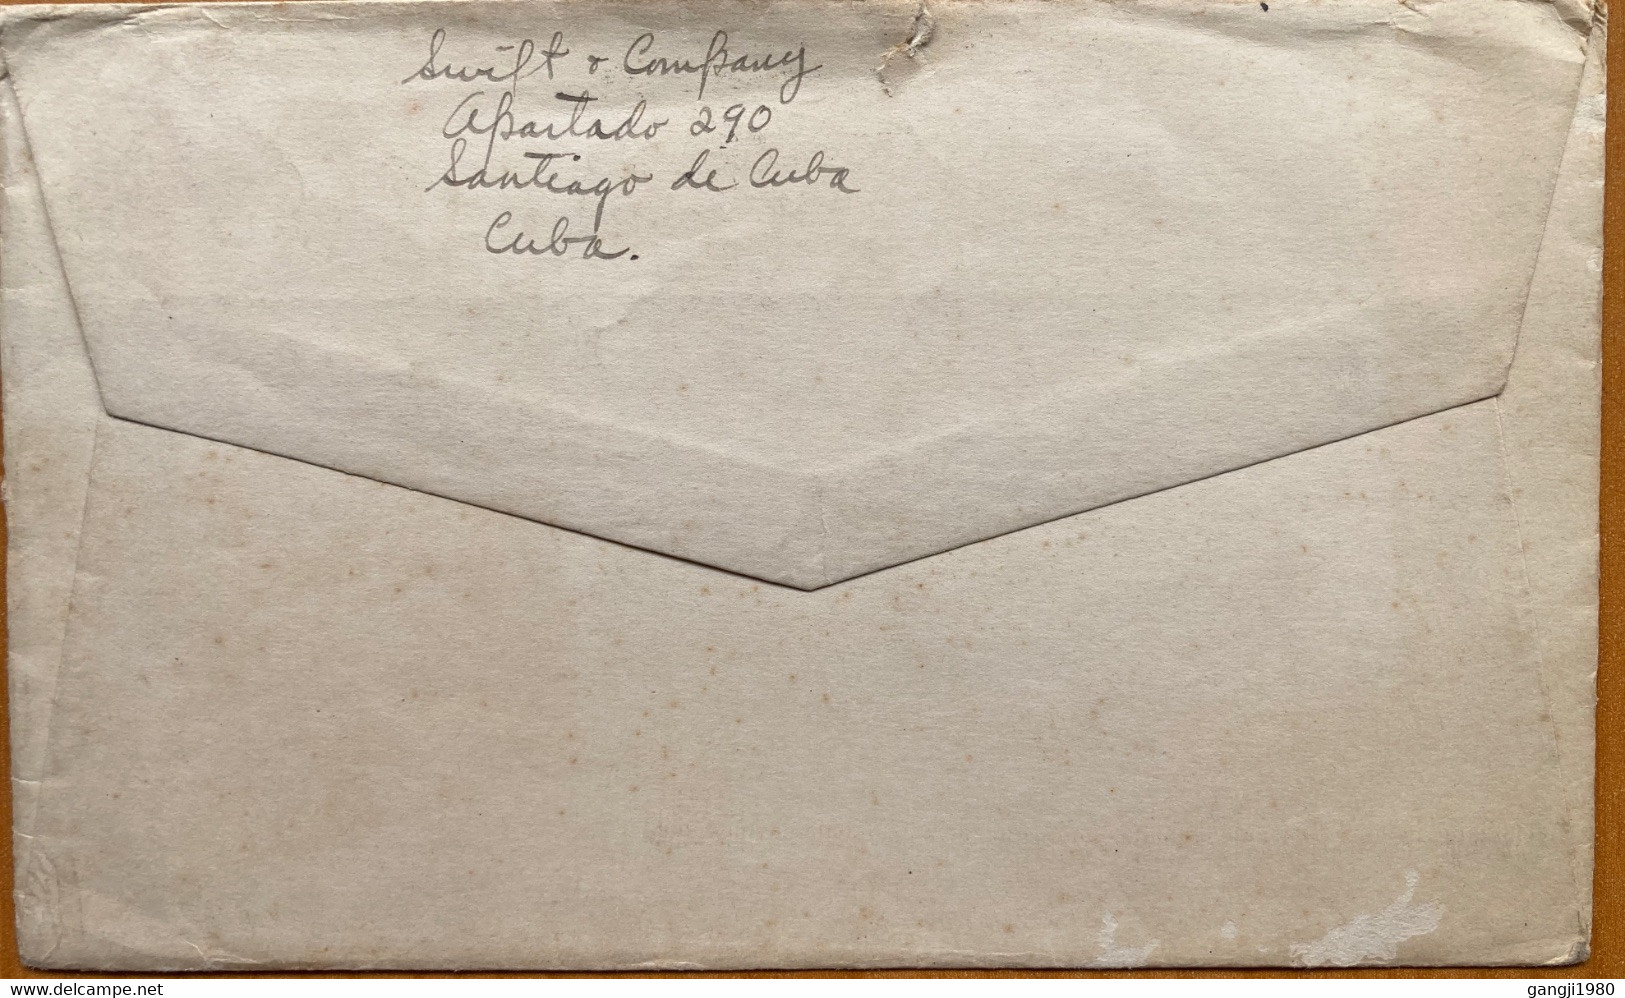 Swift & Company
Apartado 290
Santiago de Cuba
Cuba.
www.delcampe.net
gangji1980